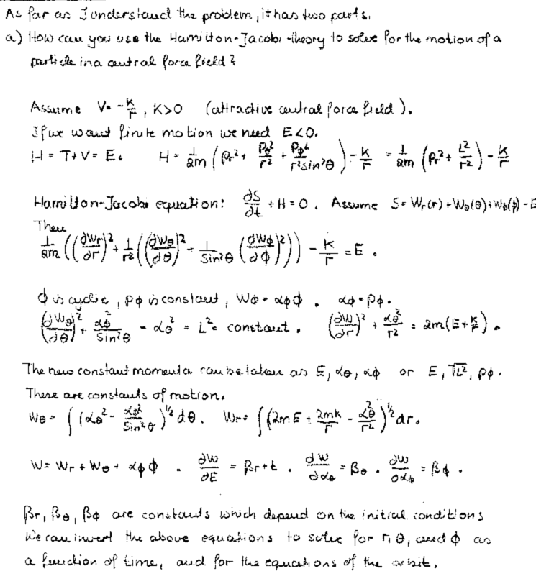 As far as I understand the problem, it has two parts.
a) How can you use the Hamilton-Jacobi theory to solve for the motion of a
particle in a central force field?
Assume V = -k/r, k>0 (attractive central force field).
If we want finite motion we need E<0.
H = T+V = E. H = 1/2m (p_r² + p_θ²/r² + p_φ²/(r² sin²θ)) - k/r = 1/2m (p_r² + L²/r²) - k/r
Hamilton-Jacobi equation: ∂S/∂t + H = 0. Assume S = W_r(r) + W_θ(θ) + W_φ(φ) - E
Then
1/2m ((∂W_r/∂r)² + 1/r² ((∂W_θ/∂θ)² + 1/sin²θ (∂W_φ/∂φ)²)) - k/r = E.
φ is cyclic, p_φ is constant, W_φ = α_φ φ. α_φ = p_φ.
(∂W_θ/∂θ)² + α_φ²/sin²θ = α_θ² = L² = constant. (∂W_r/∂r)² + α_θ²/r² = 2m(E + k/r).
The new constant momenta can be taken as E, α_θ, α_φ or E, √L², p_φ.
These are constants of motion.
W_θ = ∫ (α_θ² - α_φ²/sin²θ)^½ dθ. W_r = ∫ (2mE + 2mk/r - α_θ²/r²)^½ dr.
W = W_r + W_θ + α_φ φ. ∂W/∂E = β_r + t. ∂W/∂α_θ = β_θ. ∂W/∂α_φ = β_φ.
β_r, β_θ, β_φ are constants which depend on the initial conditions
We can invert the above equations to solve for r, θ, and φ as
a function of time, and for the equations of the orbit.